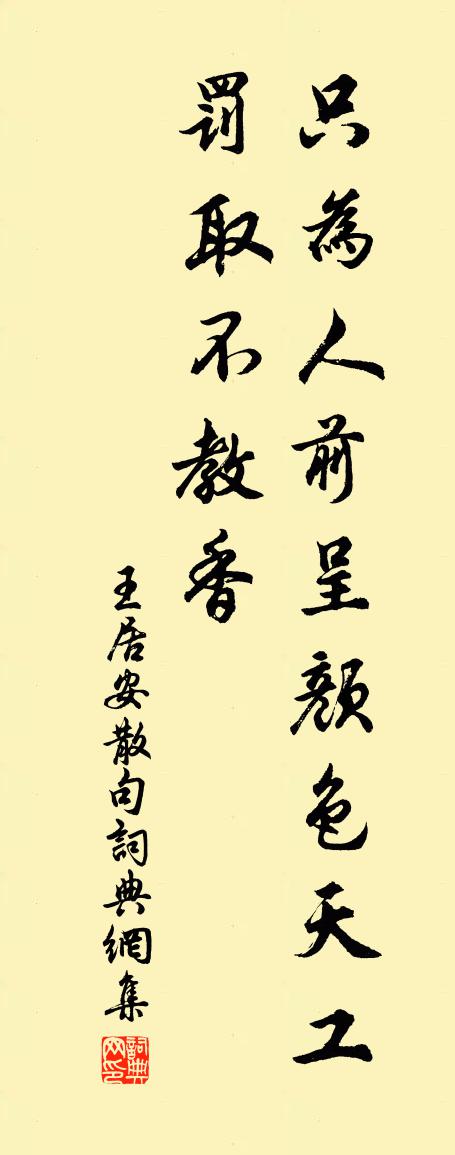 只為人前呈顏色天工
罰取不教香
王居安散句詞典網集
詞典网印